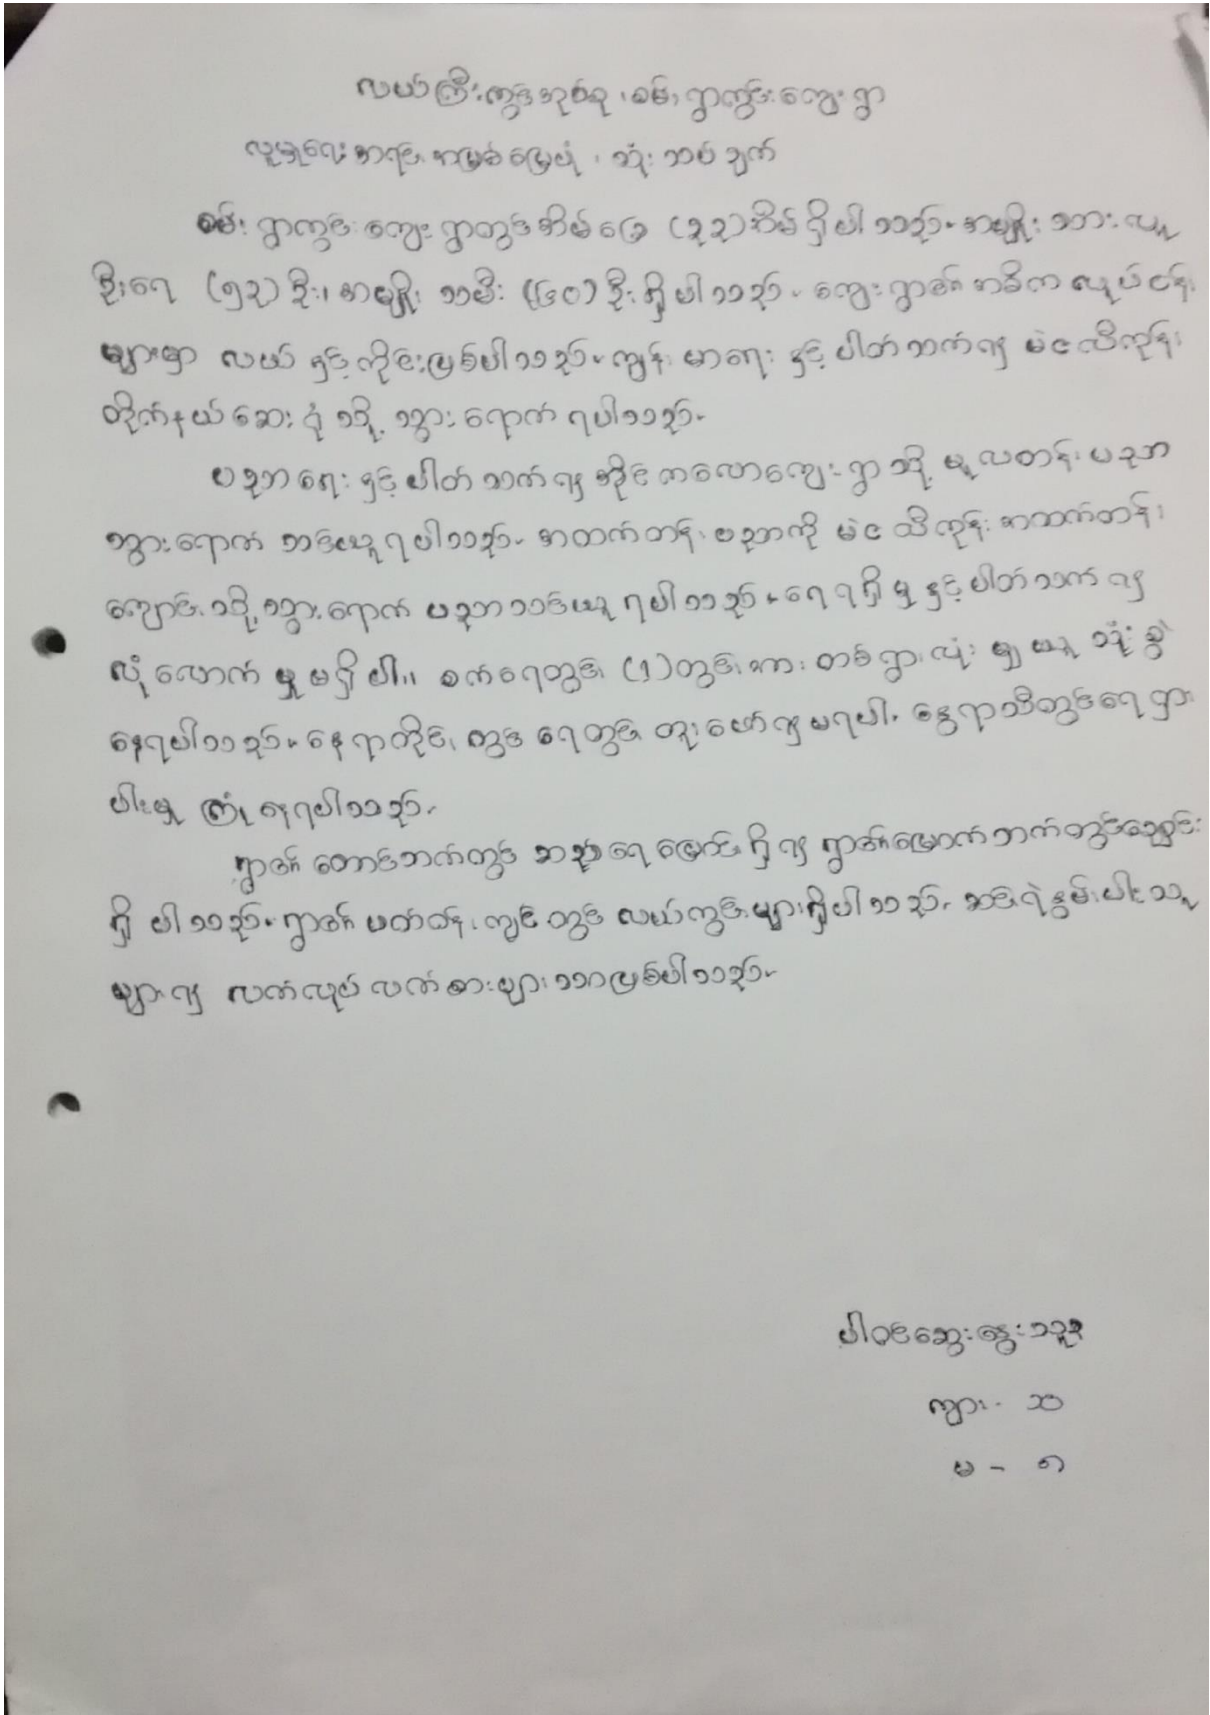 လယ်ကြီးကွင်းအုပ်စု၊ စမ်းရွာကွင်းကျေးရွာ
လူမှုရေးအရင်းအမြစ်မြေပုံ၊ သုံးသပ်ချက်
စမ်းရွာကွင်းကျေးရွာတွင် အိမ်ခြေ (၃၃)အိမ် ရှိပါသည်။ အမျိုးသားလူ
ဦးရေ (၅၃)ဦး၊ အမျိုးသမီး (၆၀)ဦး ရှိပါသည်။ ကျေးရွာ၏ အဓိက လုပ်ငန်း
များမှာ လယ်နှင့်ကိုင်းဖြစ်ပါသည်။ ကျန်းမာရေးနှင့် ပါတ်သက်၍ မဲဇလီကုန်း
တိုက်နယ်ဆေးရုံသို့ သွားရောက်ရပါသည်။
ပညာရေးနှင့်ပါတ်သက်၍ အိုင်ကလောကျေးရွာသို့ မူလတန်းပညာ
သွားရောက် သင်ယူရပါသည်။ အထက်တန်းပညာကို မဲဇလီကုန်း အထက်တန်း
ကျောင်းသို့ သွားရောက် ပညာသင်ယူရပါသည်။ ရေရရှိမှုနှင့်ပါတ်သက်၍
လုံလောက်မှုမရှိပါ။ စက်ရေတွင်း (၁)တွင်းအား တစ်ရွာလုံး မျှယူသုံးစွဲ
နေရပါသည်။ နေရာတိုင်းတွင် ရေတွင်းတူးဖော်၍မရပါ။ နွေရာသီတွင်ရေရှား
ပါးမှု ကြုံနေရပါသည်။
ရွာ၏ တောင်ဘက်တွင် ဆည်ရေမြောင်းရှိ၍ ရွာ၏မြောက်ဘက်တွင်ချောင်း
ရှိပါသည်။ ရွာ၏ ပတ်ဝန်းကျင်တွင် လယ်ကွင်းများရှိပါသည်။ ဆင်းရဲနွမ်းပါးသူ
များ၍ လက်လုပ်လက်စားများသာဖြစ်ပါသည်။
ပါဝင်ဆွေးနွေးသူ
ကျား - ၁၀
မ - ၈